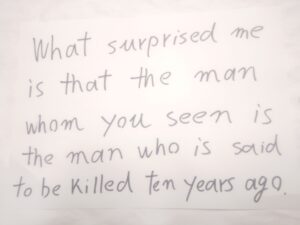 What surprised me
is that the man
whom you seen is
the man who is said
to be killed ten years ago.